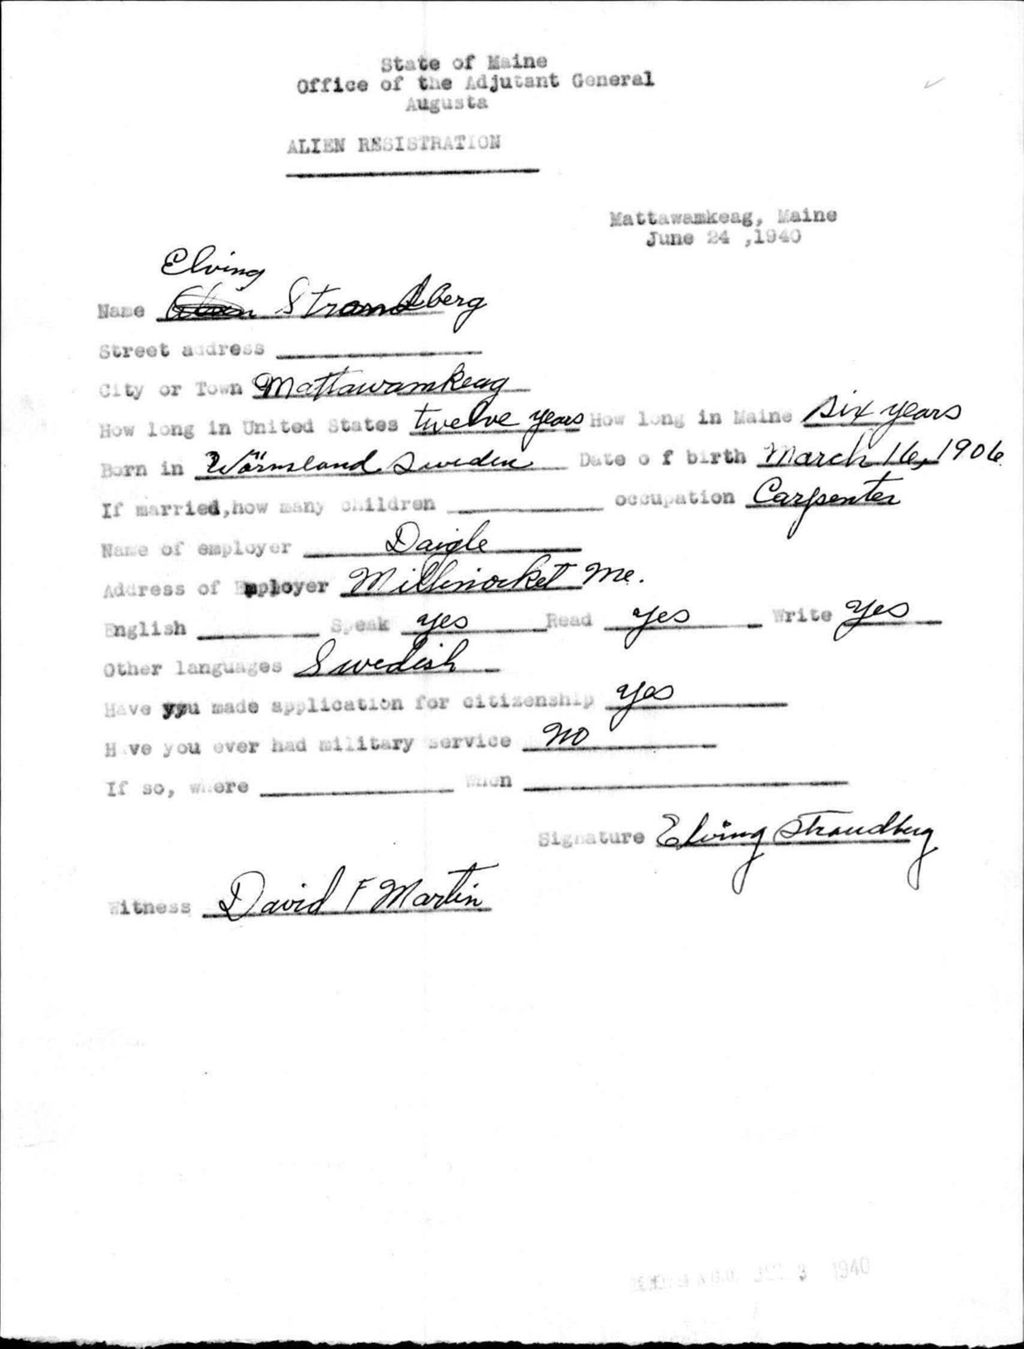 State of Maine
Office of the Adjutant General
Augusta
ALIEN REGISTRATION
Mattawamkeag, Maine
June 24 ,1940
Elving
Name Strandberg
Street address
City or Town Mattawamkeag
How long in United States twelve years How long in Maine six years
Born in Wärmsland Sweden Date o f birth March 16, 1906
If married,how many children occupation Carpenter
Name of employer Daigle
Address of Employer Millinocket Me.
English Speak yes Read yes Write yes
Other languages Swedish
Have yyu made application for citizenship yes
Have you ever had military service no
If so, where When
Signature Elving Strandberg
Witness David F Martin
3 1940